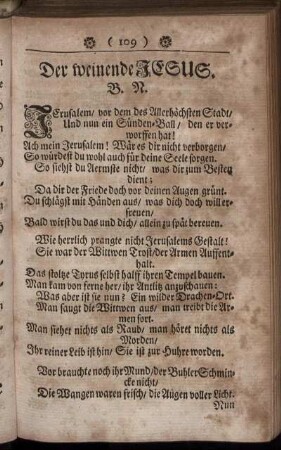 ( 109 )
Der weinende JESUS.
B. N.
JErusalem/ vor dem des Allerhöchsten Stadt/
Und nun ein Sünden-Ball/ den er ver-
worffen hat!
Ach mein Jerusalem! Wär es dir nicht verborgen/
So würdest du wohl auch für deine Seele sorgen.
So siehst du Aermste nicht/ was dir zum Besten
dient;
Da dir der Friede doch vor deinen Augen grünt.
Du schlägst mit Händen aus/ was dich doch will er-
freuen/
Bald wirst du das und dich/ allein zu spät bereuen.
Wie herrlich prangte nicht Jerusalems Gestalt!
Sie war der Wittwen Trost/ der Armen Auffent-
halt.
Das stoltze Tyrus selbst halff ihren Tempel bauen.
Man kam von ferne her/ ihr Antlitz anzuschauen:
Was aber ist sie nun? Ein wilder Drachen-Ort.
Man saugt die Wittwen aus/ man treibt die Ar-
men fort.
Man siehet nichts als Raub/ man höret nichts als
Morden/
Ihr reiner Leib ist hin/ Sie ist zur Huhre worden.
Vor brauchte noch ihr Mund/ der Buhler Schmin-
cke nicht/
Die Wangen waren frisch/ die Augen voller Licht.
Nun